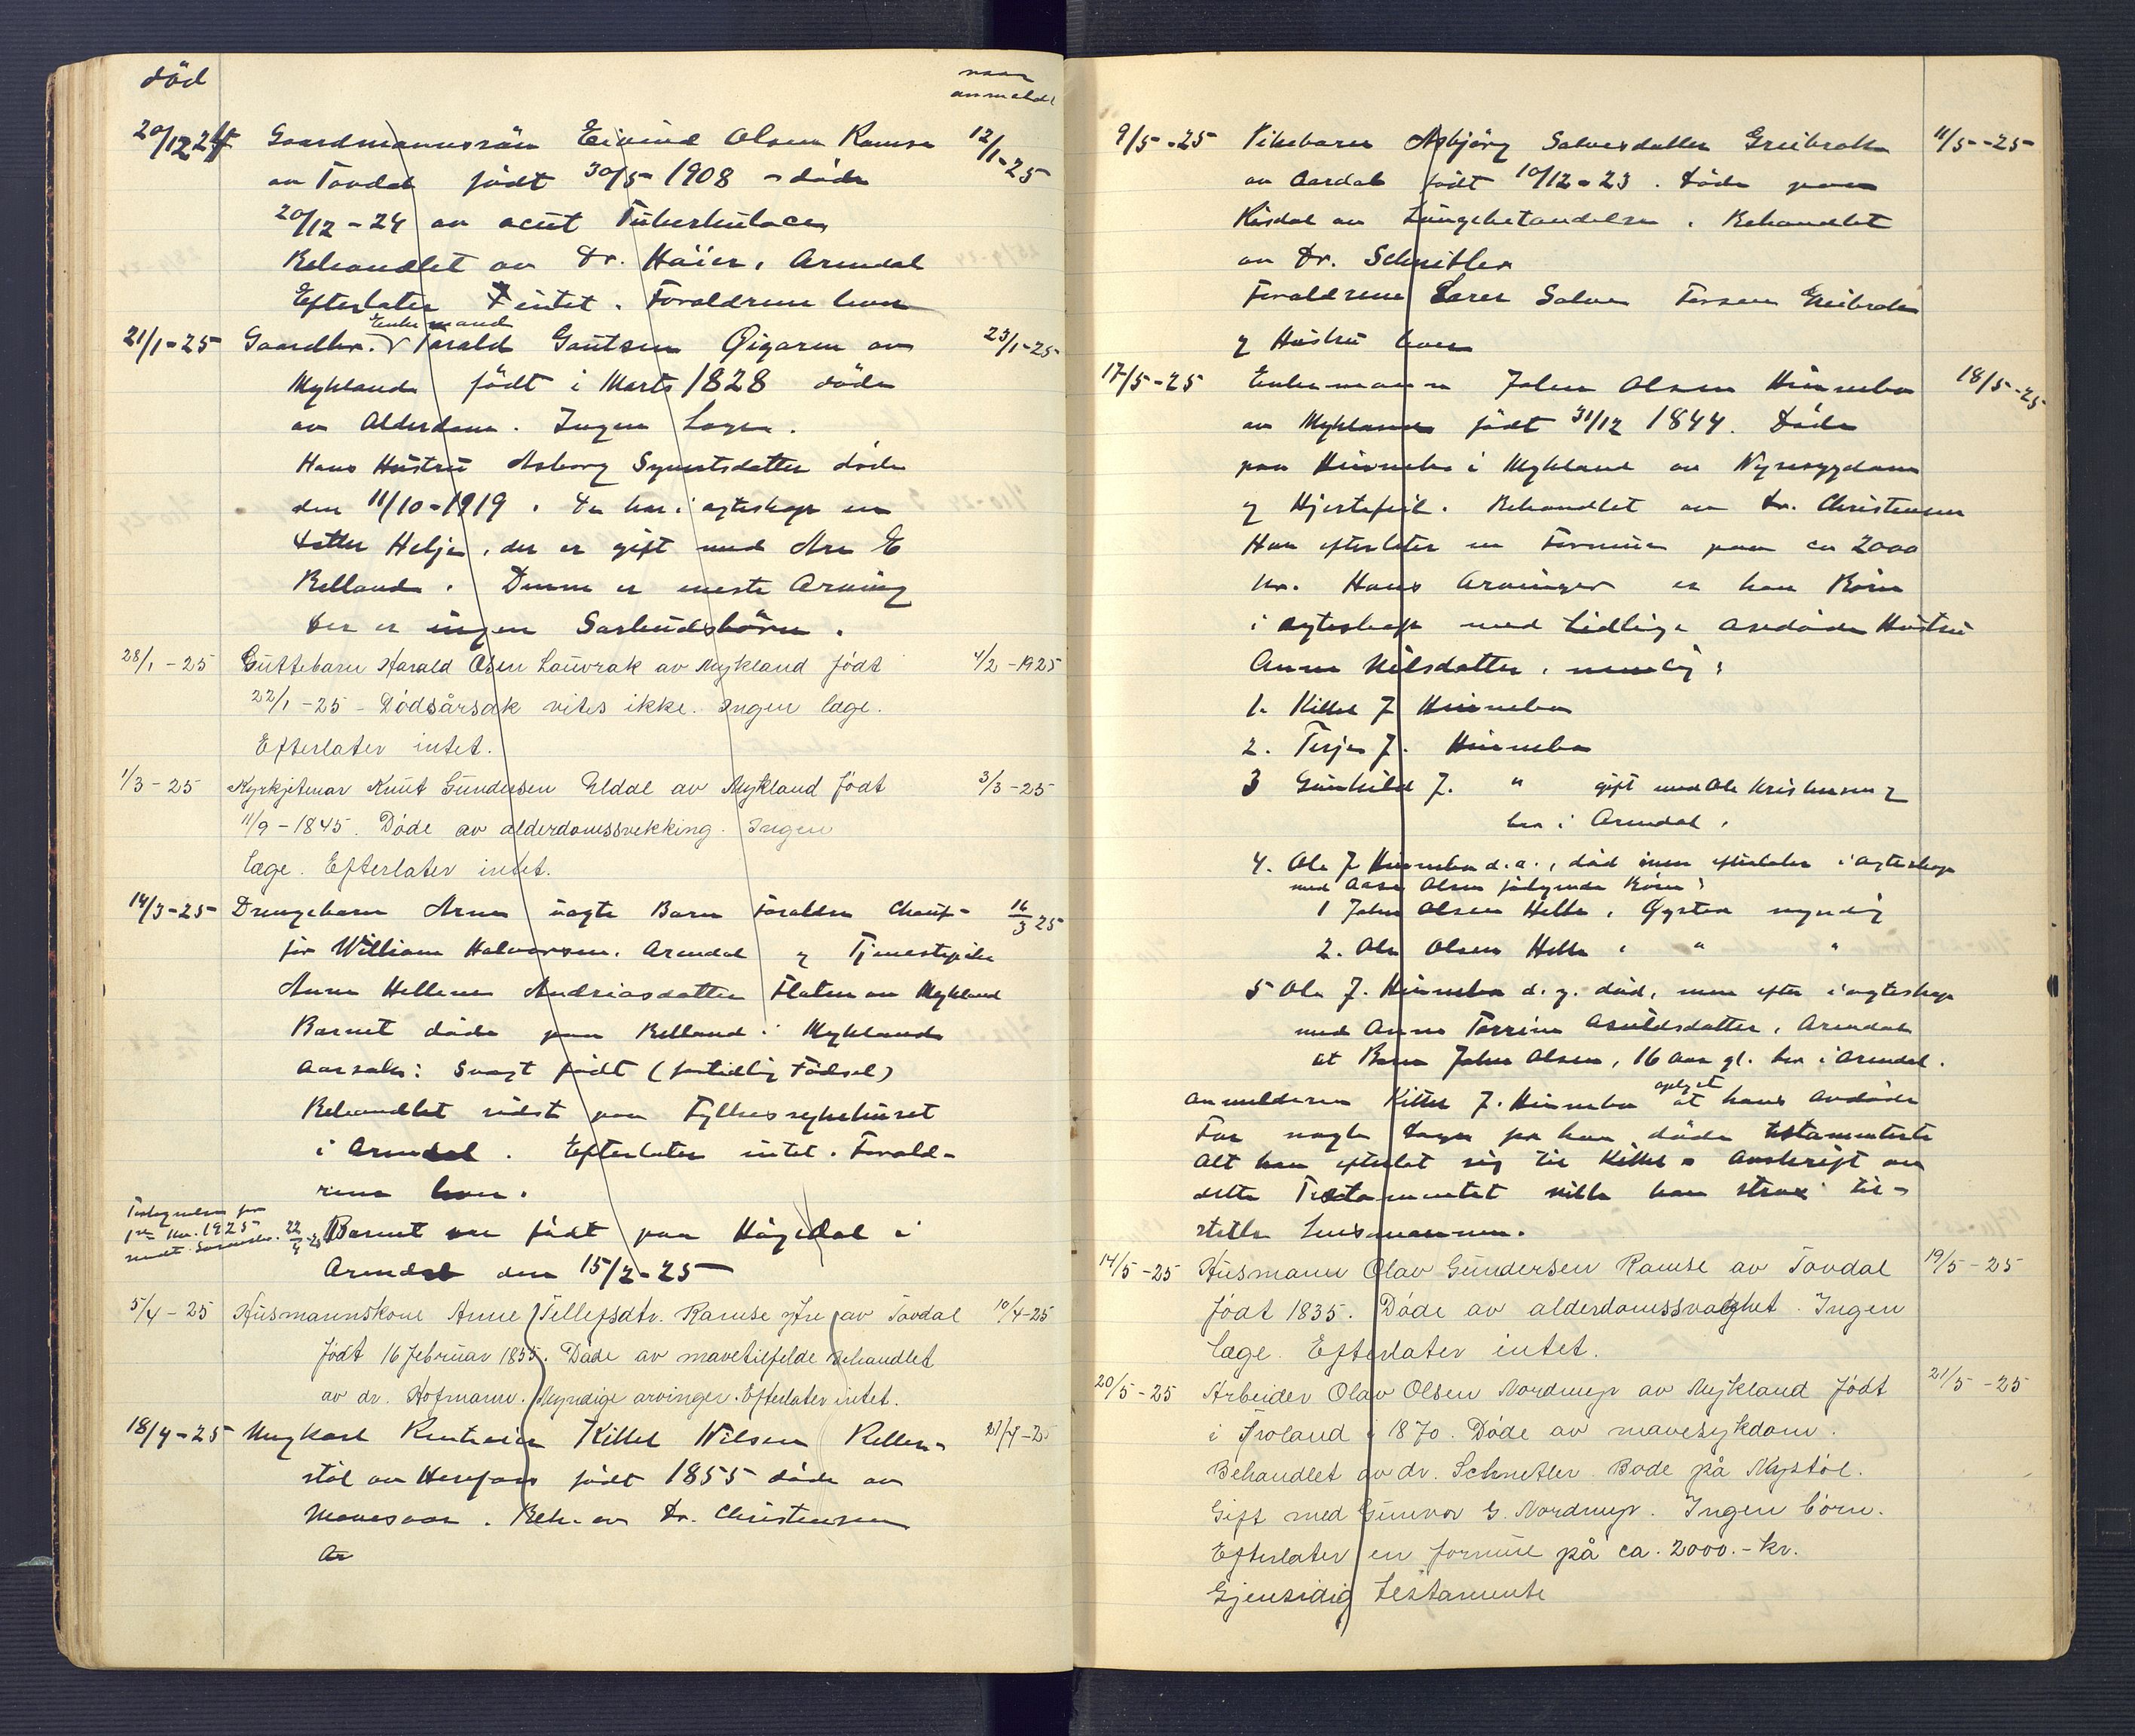 död
naar
anmeldt
20/12 24 Gaardmannssön Eivind Olsen Ramse 12/1-25
av Tovdal födt 30/5-1908 - döde
20/12-24 av acut Tuberkulose
Behandlet av Dr. Häier, Arendal
Efterlater intet. Foraldrene lever
Enkemand
21/1-25 Gaardbr. Tarald Gautsen Øigaren av 23/1-25
Mykland födt i Marts 1828 döde
av Alderdom. Ingen Læge.
Hans Hustru Asborg Syvertsdatter döde
den 11/10-1919. De har i egteskap en
datter Helje, der er gift med Are E
Belland. Denne er eneste Arving
der er ingen Særkuldsbörn.
28/1-25 Guttebarn Harald Olsen Lauvrak av Mykland født 4/2-1925
22/1-25 - Dödsårsak vites ikke. Ingen læge.
Efterlater intet.
1/3-25 Kyrkjetenar Knut Gundersen Eldal av Mykland født 3/3-25
11/9-1845. Døde av alderdomssvekking. Ingen
læge. Efterlater intet.
14/3-25 Drengebarn Arne uegte Barn Foraldre Chauf- 16/3 25
för William Halvorsen, Arendal og Tjenestepike
Anne Hellene Andriasdatter Flaten av Mykland
Barnet döde paa Belland i Mykland
Aarsak: Svagt födt (fortidlig Födsel)
Behandlet sidst paa Fylkessykehuset
i Arendal. Efterlater intet. Forald-
rene lever.
1925
Barnet var födt paa Høgedal i
Arendal den 15/2-25
5/4-25 Husmannskone Anne Tellefsdtr. Ramse ytre av Tovdal 10/4-25
født 16 februar 1855. Døde av mavetilfelde behandlet
av dr. Hofmann. Myndige arvinger. Efterlater intet.
18/4-25 Ungkarl Rentenier Kittel Nilsen Rellen- 21/4-25
stöl av Herefoss födt 1855 döde av
Mavesaar. Beh. av Dr. Christensen
9/5-25 Pikebarn Asbjörg Salvesdatter Greibrok 11/5-25
av Aardal födt 10/12-23. Döde paa
Risdal av Lungebetændelse. Behandlet
av Dr. Schnitler
Foraldrene Salve Tarsen Greibrok
og Hustru lever
17/5-25 Enkemann John Olsen Hinnebu 18/5-25
av Mykland födt 31/12 1844. Döde
paa Hinnebu i Mykland av Nyresygdom
og Hjertefeil. Behandlet av Dr. Christensen
Han efterlater en Formue paa ca 2000
kr. Hans Arvinger er hans Börn
i egteskap med tidligere avdöde Hustru
Anne Nilsdatter, nemlig:
1. Kittel J Hinnebu
2. Terje J. Hinnebu
3 Gunhild J. " gift med Ole Kristensen
bor i Arendal.
4. Ole J Hinnebu d.a., död men efterlater i egteskap
med Aase Olsen fölgende Börn:
1 John Olsen Helle, Øyestad myndig
2. Ole Olsen Helle " "
5 Ole J. Hinnebu d.y. död, men efter i egteskap
med Anne Torrine Asuldsdatter, Arendal
et Barn John Olsen, 16 aar gl. bor i Arendal.
Anmelderen Kittel J. Hinnebu oplyst at hans avdöde
Far nogle Dage för han döde testamenterte
Alt han efterlot sig til Kittel. Avskrift av
dette Testamentet vilde han strax til-
stille Lensmannen.
14/5-25 Husmann Olav Gundersen Ramse av Tovdal 19/5-25
født 1835. Døde av alderdomssvaghet. Ingen
læge. Efterlater intet.
20/5-25 Arbeider Olav Olsen Nordrup av Mykland født 21/5-25
i Froland i 1870. Døde av mavesykdom.
Behandlet av dr. Schnitler. Bode på Nystøl.
Gift med Gunvor G. Nordrup. Ingen børn.
Efterlater en formue på ca. 2000.- kr.
Gjensidig testamente